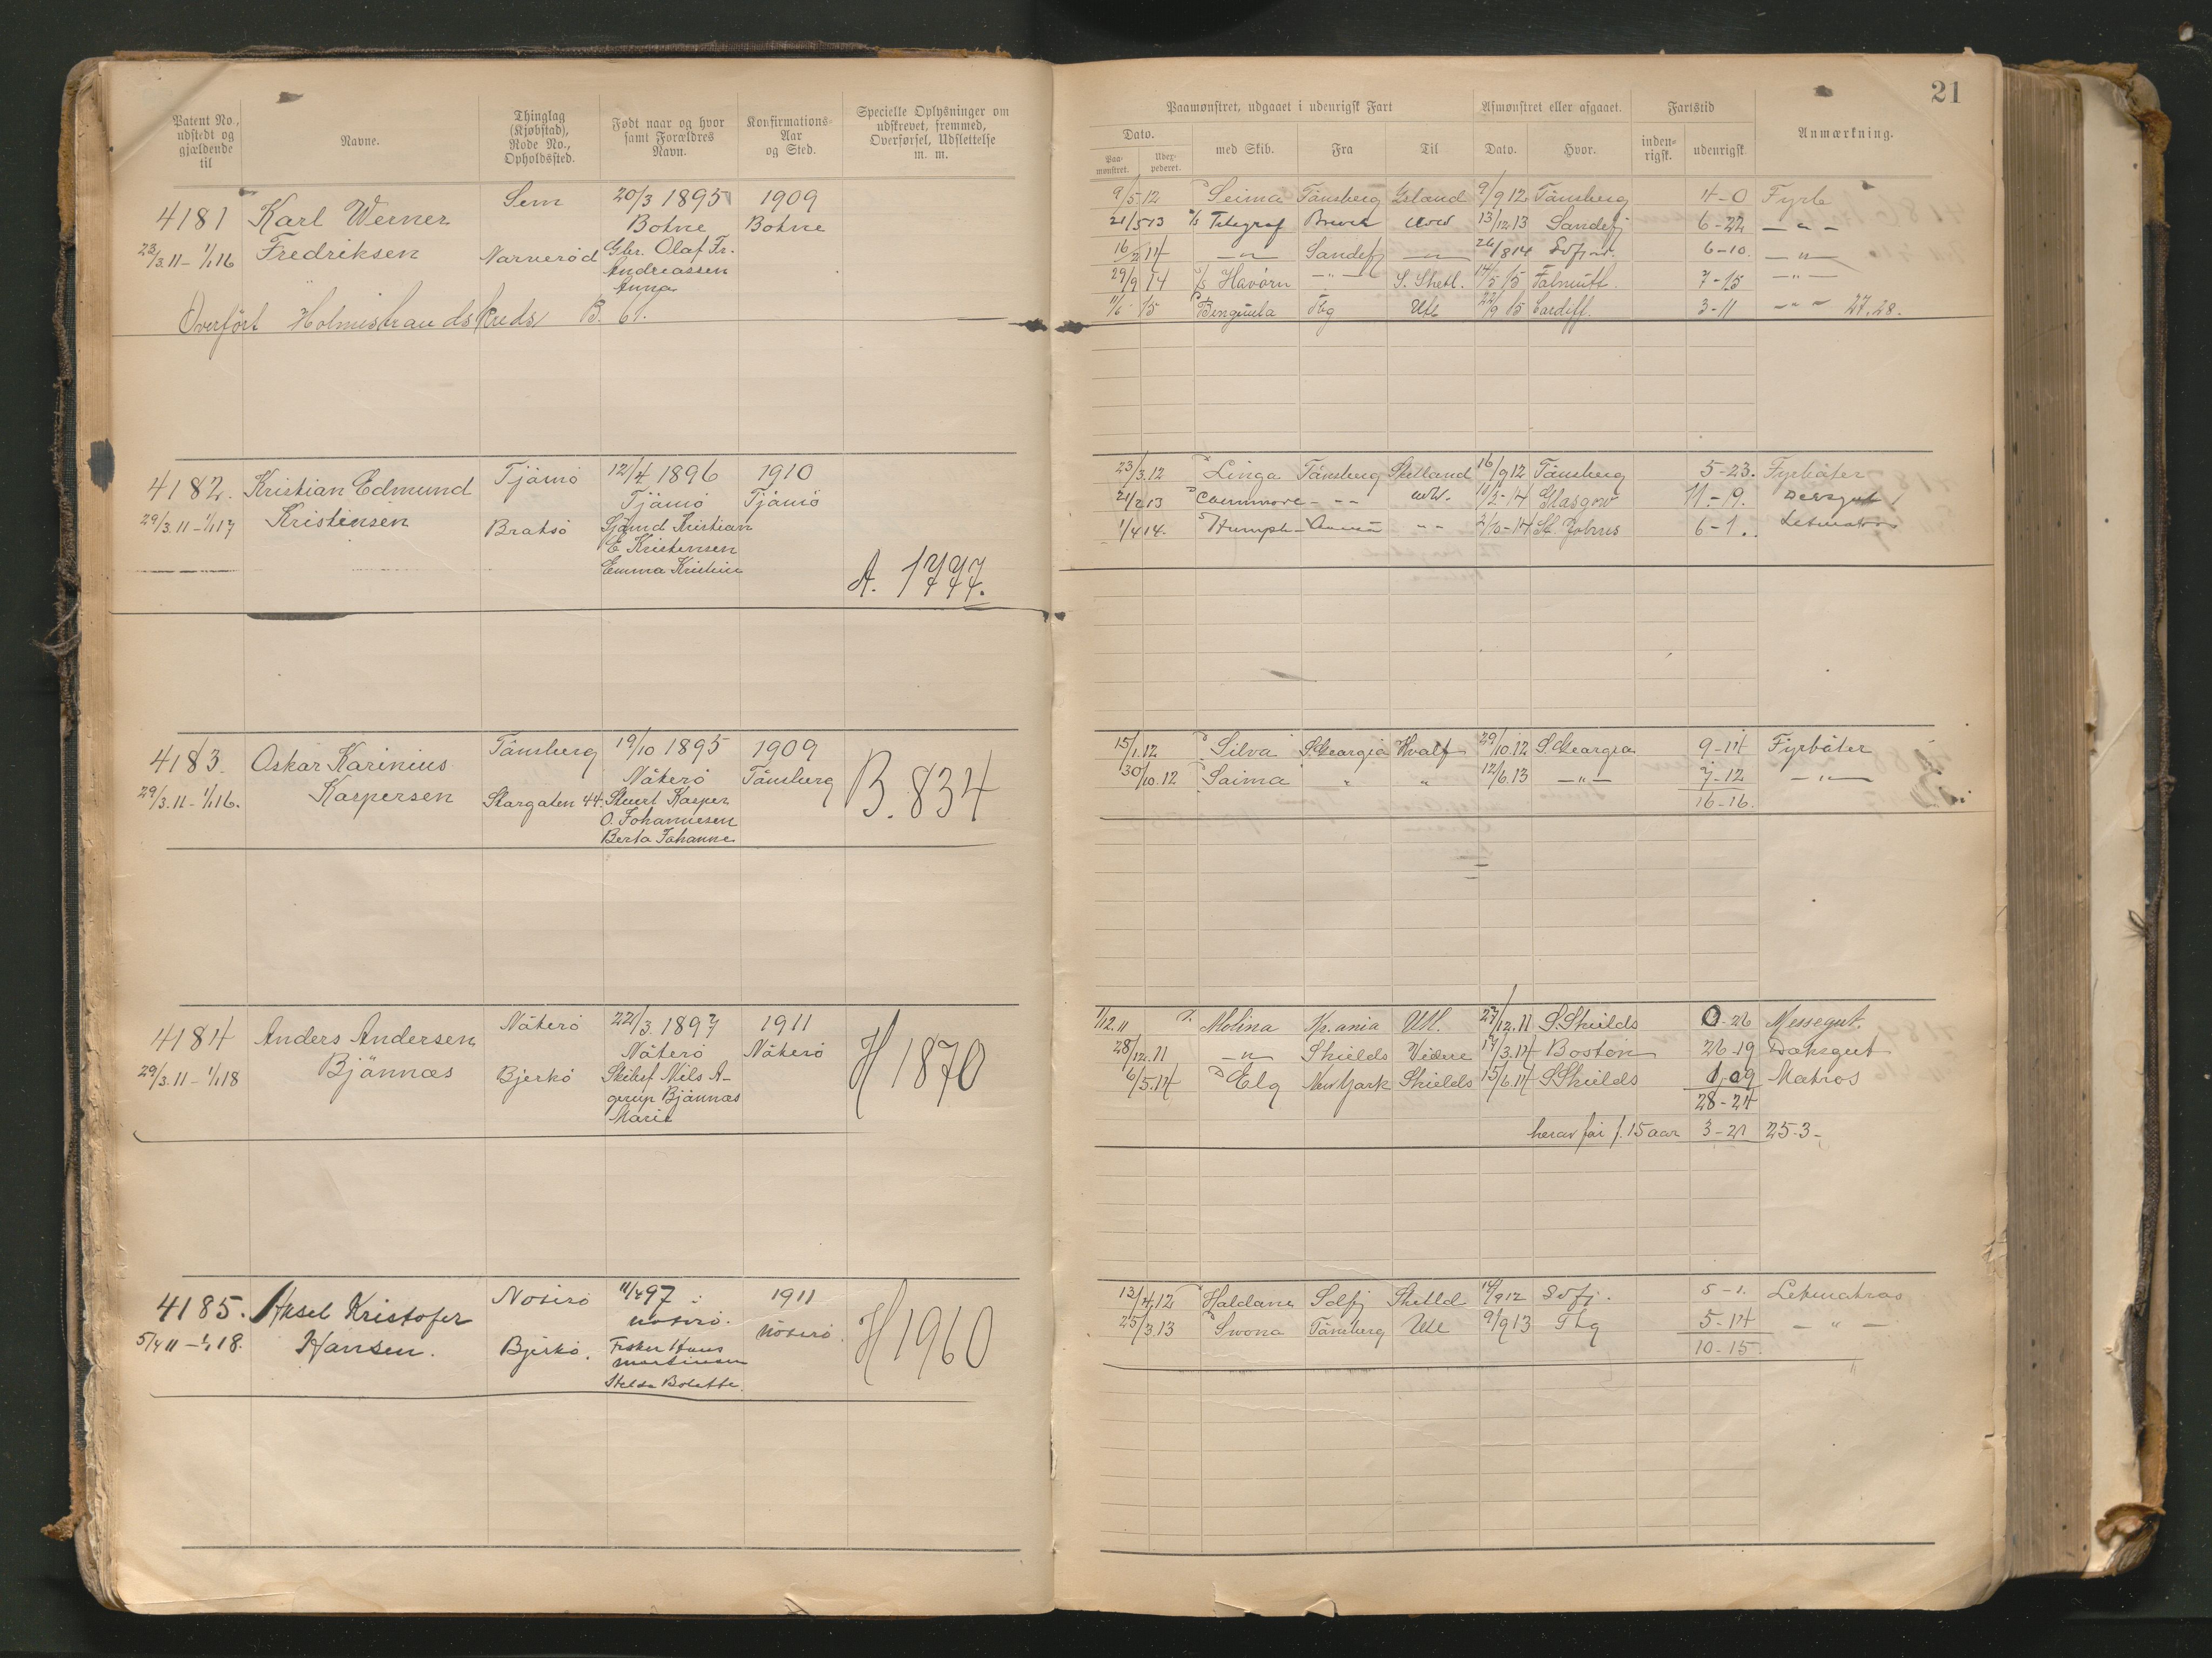 21
Patent No., udstedt og gjældende til
Navne.
Thinglag (Kjøbstad), Rode No., Opholdssted.
Født naar og hvor samt Forældres Navn.
Konfirmations-Aar og Sted.
Specielle Oplysninger om udskrevet, fremmed, Overførsel, Udslettelse m. m.
Paamønstret, udgaaet i udenrigsk Fart
Afmønstret eller afgaaet.
Fartstid
Anmærkning.
Dato.
Paa-mønstret.
med Skib.
Fra
Til
Dato.
Hvor.
inden-rigsk.
udenrigsk
4181 Karl Werner Sem 20/3 1895 1909
Botne Botne
23/3.11 - 1/1 16 Fredriksen Narverød Gbr. Olaf Fr.
Andreassen
Anna
Overført Holmestrands Kreds B. 61.
9/5 12 Seima Tånsberg Island 9/9 12 Tånsberg 4-0 Fyrb
21/5 13 Telegraf Brevik 13/12 13 Sandefj 6-22 - " -
16/2 14 - " - Sandefj - " - 26/8 14 6-10. - " -
29/9 14 Havörn - " - S. Shetl. 14/5 15 Falmuth. 7-15 - " -
11/6 15 Benguela Tbg Utl 22/9 15 Cardiff. 3-11 - " - 27.28.
4182. Kristian Edmund Tjømø 12/4 1896 1910
Tjømø Tjømø
29/3.11 - 1/1 17 Kristensen Bratsö Sjømd Kristian
E Kristensen
Emma Kristin
A. 1777.
23/3.12 Linga Tånsberg Shetland 16/9 12 Tånsberg 5-23. Fyrbøter
21/2 13 - " - 14 Glasgow 11-9. Deksgut
1/4 14. 2/10-14 St. Johns 6-1. Letmatros
4183. Oskar Karinius Tånsberg 19/10 1895 1909
Nöterö Tånsberg
29/3.11 - 1/1 16. Kaspersen Storgaten 44. Stuert Kasper
O. Johannesen
Berta Johanne
B. 834
15/1.12 Silva S. Georgia Hvalf 29/10.12 S. Georgia 9-14 Fyrbøter
30/10.12 Saima " " 12/6.13 - " - 7-12 - " -
16-16.
4184 Anders Andersen Nöterö 22/3. 1897 1911
Nöterö Nöterö
29/3.11 - 1/1 18 Bjånnæs Bjerkö Skibsf Nils A-
gerup Bjånnæs
Marie
H 1870
1/12.11 Molina Kr.ania Utl. 27/12.11 S. Shields 0-26 Messegut.
28/12.11 - " - Shields Videre 17/3.14 Boston 26-19 Dæksgut
6/5.14 Elg New York Shields 15/6.14 S. Shields 1-09 Matros
28-24
herav før f. 15 aar 3-21 25-3-
4185. Aksel Kristofer Nöterö 11/4 97 1911
Nöterö. Nöterö.
5/4 11 - 1/1 18. Hansen. Bjerkö. Fisker Hans
Martinsen
Helda Bolette.
H 1960
13/4.12 Haldane Shetld 14/9 12 5-1. Letmatros
25/3.13 Swona Tånsberg Utl 9/9 13 Tbg 5-14 - " -
10-15.